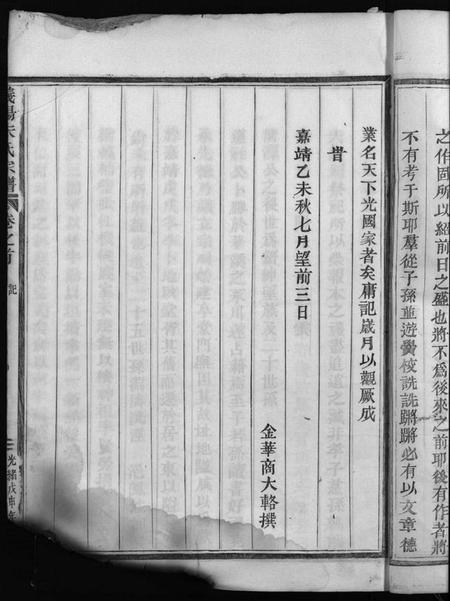 之作固所以紹前日之盛也將不爲後來之前耶後有作者將
不有考于斯耶羣從子孫並遊黌校詵詵蹡蹡必有以文章德
業名天下光國家者矣庸記歲月以觀厥成
昔
嘉靖乙未秋七月望前三日
金華商大輅撰
義陽朱氏宗譜
卷之首
記
光緒戊申年